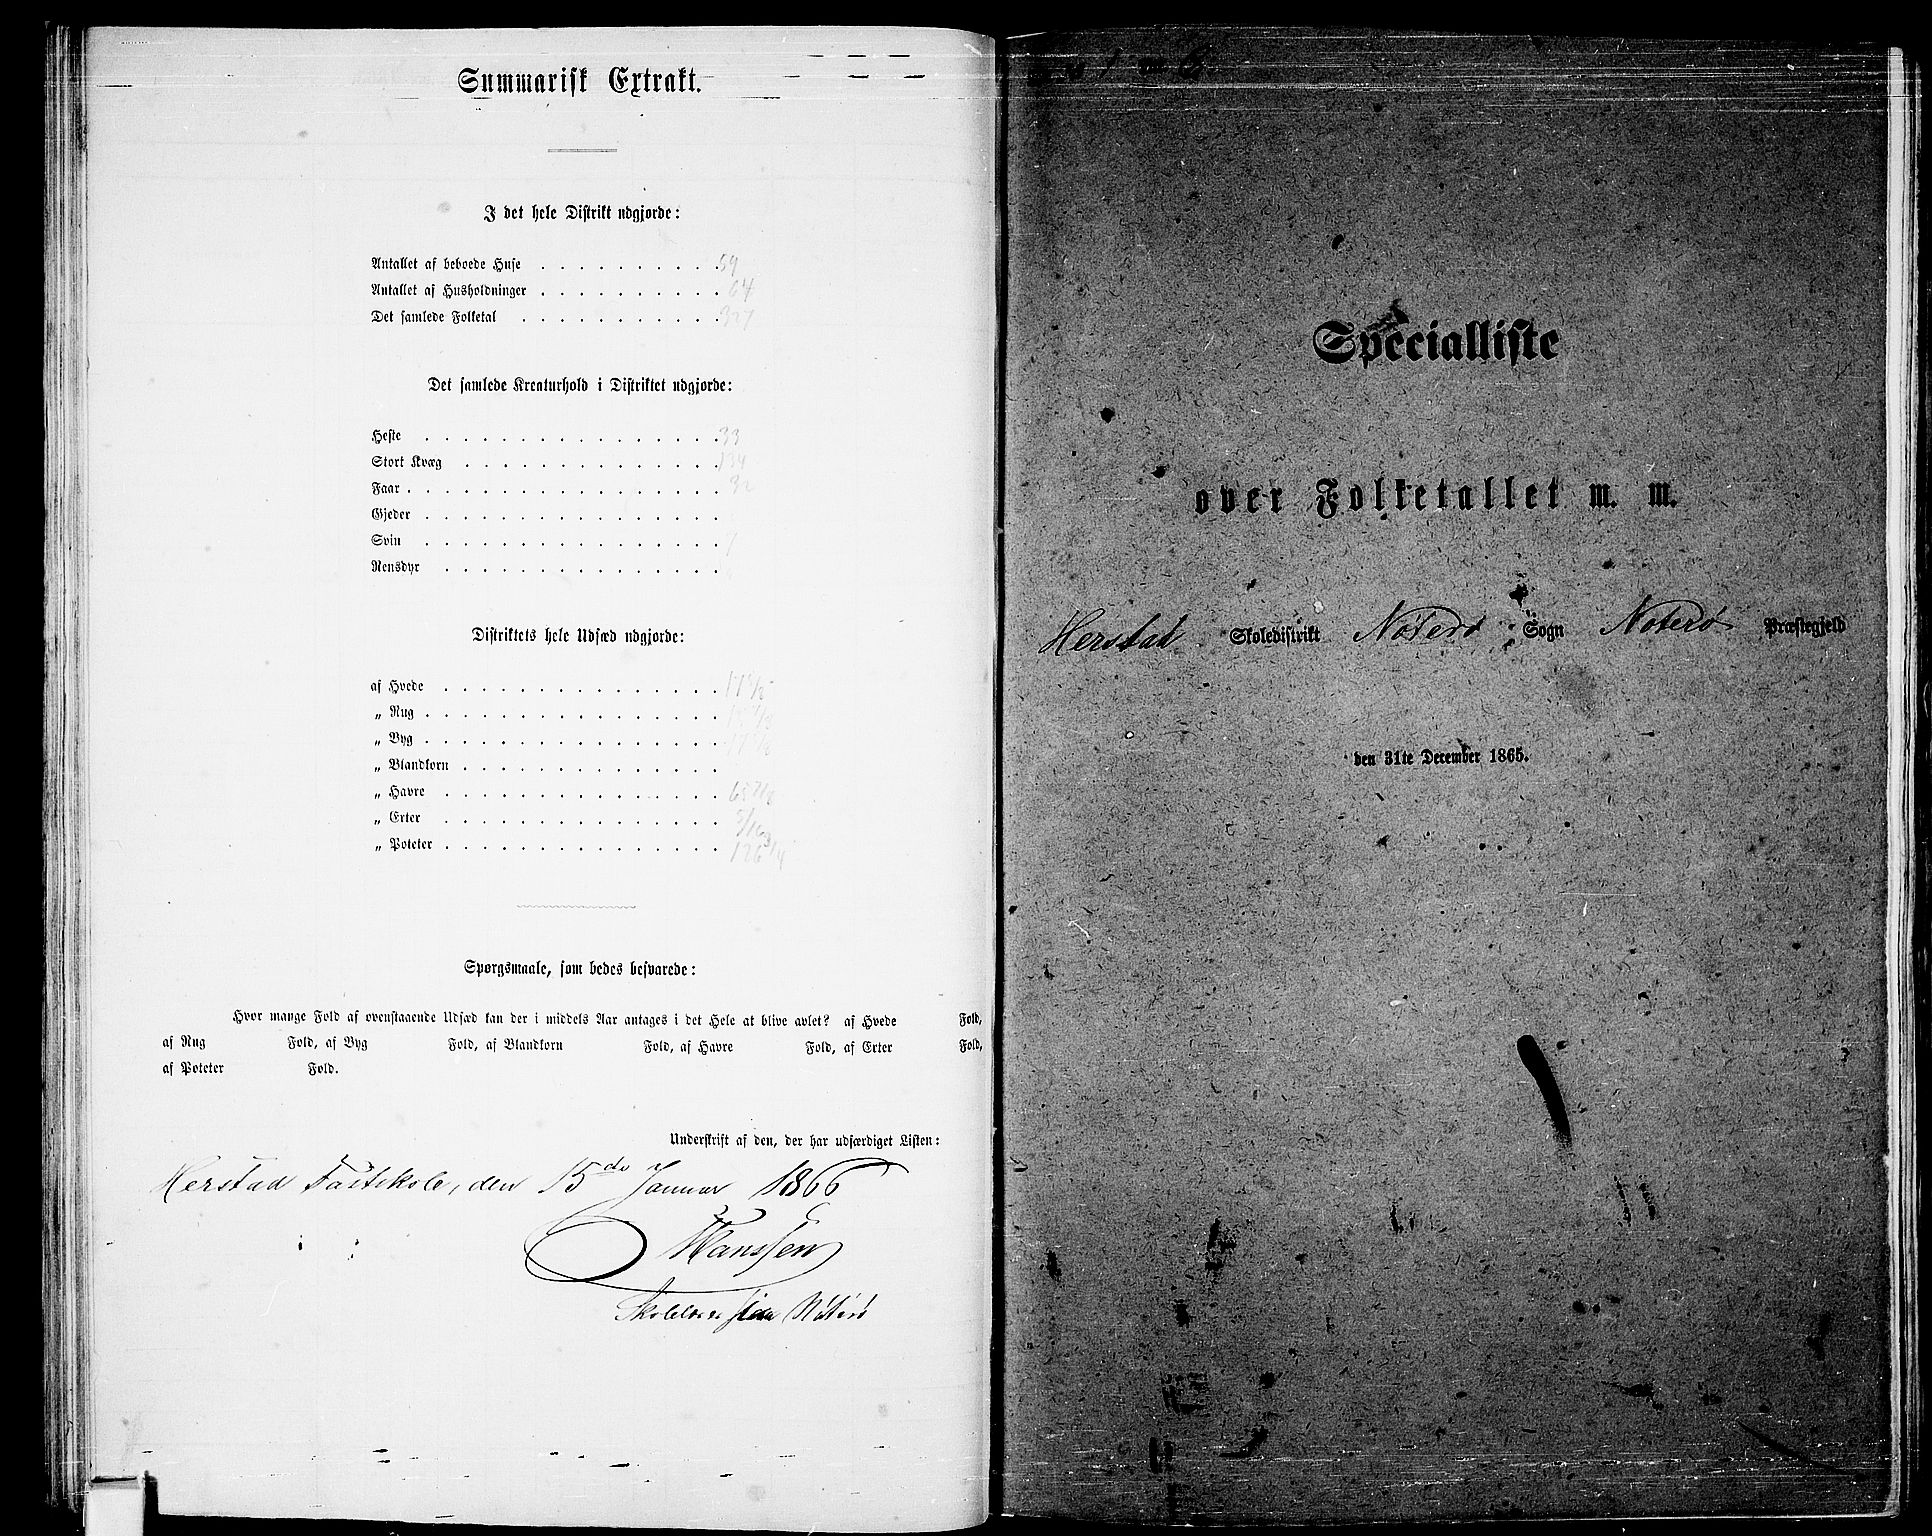 Summarisk Extrakt.
I det hele Distrikt udgjorde:
Antallet af beboede Huse . . . . . . . . . . 59
Antallet af Husholdninger . . . . . . . . . . 64
Det samlede Folketal . . . . . . . . . . . 327
Det samlede Kreaturhold i Distriktet udgjorde:
Heste . . . . . . . . . . . . . . . . 33
Stort Kvæg . . . . . . . . . . . . . . 134
Faar . . . . . . . . . . . . . . . . . 32
Gjeder . . . . . . . . . . . . . . . .
Svin . . . . . . . . . . . . . . . . 7
Rensdyr . . . . . . . . . . . . . . .
Distriktets hele Udsæd udgjorde:
af Hvede . . . . . . . . . . . . . . .
„ Rug . . . . . . . . . . . . . . . .
„ Byg . . . . . . . . . . . . . . . .
„ Blandkorn . . . . . . . . . . . . . .
„ Havre . . . . . . . . . . . . . . .
„ Erter . . . . . . . . . . . . . . .
„ Poteter . . . . . . . . . . . . . . . 126 3/4
Spørgsmaale, som bedes besvarede:
Hvor mange Fold af ovenstaaende Udsæd kan der i middels Aar antages i det Hele at blive avlet? af Hvede Fold,
af Rug Fold, af Byg Fold, af Blandkorn Fold, af Havre Fold, af Erter Fold,
af Poteter Fold.
Underskrift af den, der har udfærdiget Listen:
Herstad Fastskole, den 15de Januar 1866
Hanssen
Nøterø
Specialliste
over Folketallet m. m.
Herstad Skoledistrikt Nøterø Sogn Nøterø Præstegjeld
den 31te December 1865.